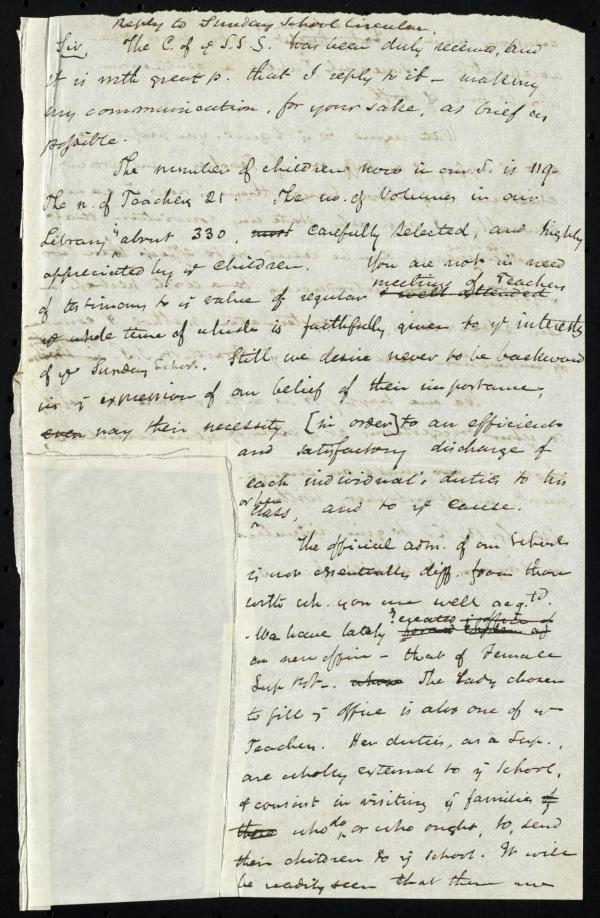 Reply to Sunday School Circular.
Sir, The C. of ye S.S.S. has been duly received, and
it is with great p. that I reply to it – making
my communication, for your sake, as brief as
possible.
The number of children now in our S. is 119.
The n. of Teachers 21. The no. of Volumes in our
Library is about 330, most carefully selected, and highly
appreciated by ye children. You are not in need
of testimony to ye value of regular meetings of Teachers
& well attended,
ye whole time of which is faithfully given to ye interests
of ye Sunday School. Still we desire never to be backward
in ye expression of our belief of their importance,
even nay their necessity, [in order] to an efficient
and satisfactory discharge of
each individual's duties to his
or her class, and to ye cause.
The official adm. of our Schools
is not essentially diff. from those
with wh. you are well acq.td.
We have lately created ye office of
an new office – that of Female
Sup. whose The Lady chosen
to fill ye office is also one of ye
Teachers. Her duties, as a Sup.,
are wholly external to ye school,
& consist in visiting ye families of
those who do, or who ought, to, send
their children to ye school. It will
be readily seen that there are